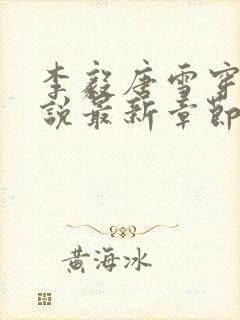 李毅唐雪穿
說最新章節
黃海冰